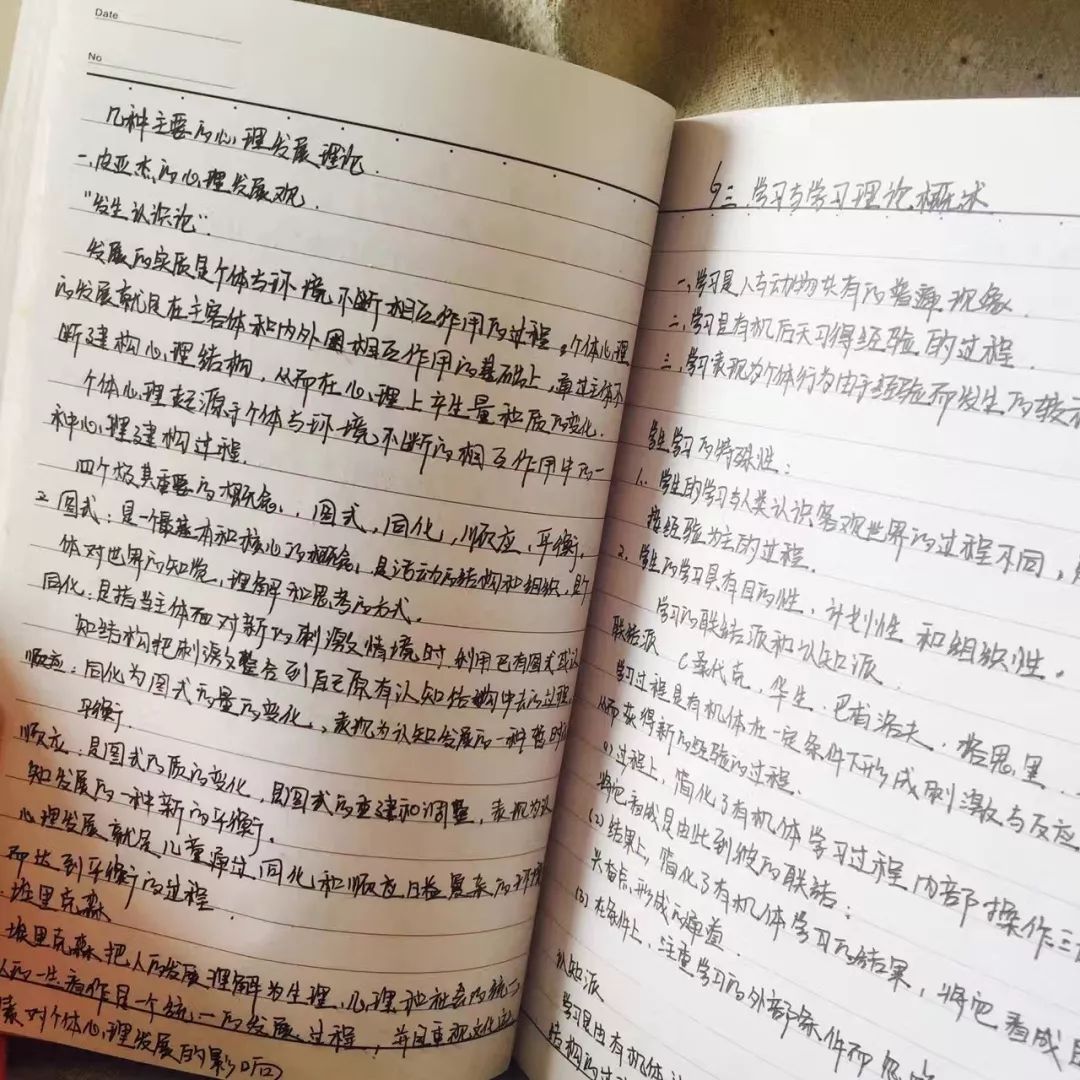 Date
No
几种主要的心理发展理论.
一.皮亚杰的心理发展观.
"发生认识论":
发展的实质是个体与环境不断相互作用的过程。个体心理
的发展就是在主客体和内外因相互作用的基础上,通过主体不
断建构心理结构,从而在心理上产生量和质的变化.
个体心理起源于个体与环境不断的相互作用中的一
种心理建构过程.
四个极其重要的概念:图式,同化,顺应,平衡.
2.图式:是一个最基本和核心的概念,是活动的结构和组织,是个
体对世界的知觉,理解和思考的方式.
同化:是指当主体面对新的刺激情境时,利用已有图式或认
知结构把刺激整合到自己原有认知结构中去的过程.
顺应:同化为图式的量的变化,表现为认知发展的一种暂时的
平衡.
顺应:是图式的质的变化,是图式的重建和调整,表现为认
知发展的一种新的平衡.
心理发展就是儿童通过同化和顺应日益复杂的环境
而达到平衡的过程.
埃里克森
埃里克森把人的发展理解为生理,心理和社会的统一
人的一生看作是一个统一的发展过程,并且重视文化
素对个体心理发展的影响
§三.学习与学习理论概述
一,学习是人与动物共有的普遍现象.
二,学习是有机后天习得经验的过程.
三,学习表现为个体行为由于经验而发生的较
学生学习的特殊性:
1.学生的学习与人类认识客观世界的过程不同,
接经验为主的过程.
2.学生的学习具有目的性,计划性和组织性.
学习的联结派和认知派.
联结派 桑代克,华生.巴甫洛夫.
学习过程是有机体在一定条件下形成刺激与反应
从而获得新的经验的过程.
(1)过程上,简化了有机体学习过程内部操作
将它看成是由此到彼的联结;
(2)结果上,简化了有机体学习的结果,将它看成
兴奋点形成的通道
(3)在条件上,注重学习的外部条件而忽
认知派
学习是由有机体
结构的过